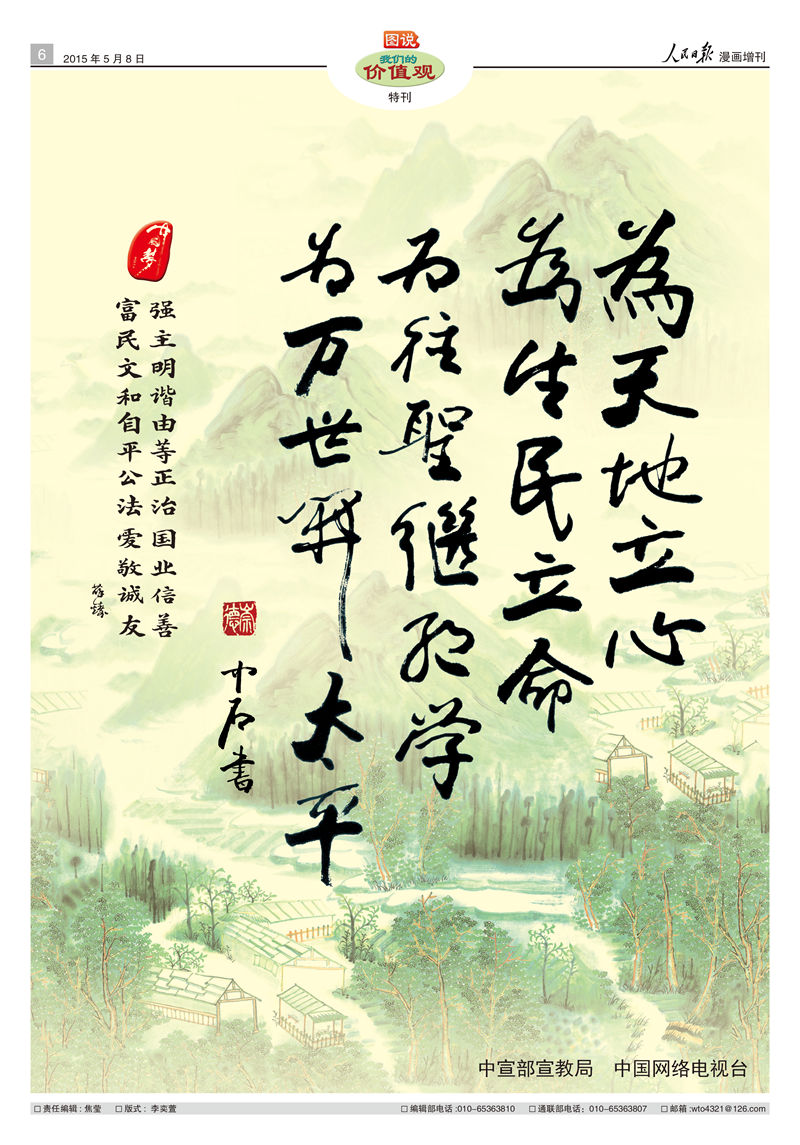 6
2015年5月8日
图说
我们的
价值观
特刊
人民日报 漫画增刊
為天地立心
為生民立命
为往聖繼绝学
为万世開太平
中石書
中国梦
富强
民主
文明
和谐
自由
平等
公正
法治
爱国
敬业
诚信
友善
中宣部宣教局 中国网络电视台
□责任编辑:焦莹 □版式:李奕萱 □编辑部电话:010-65363810 □通联部电话:010-65363807 □邮箱:wto4321@126.com